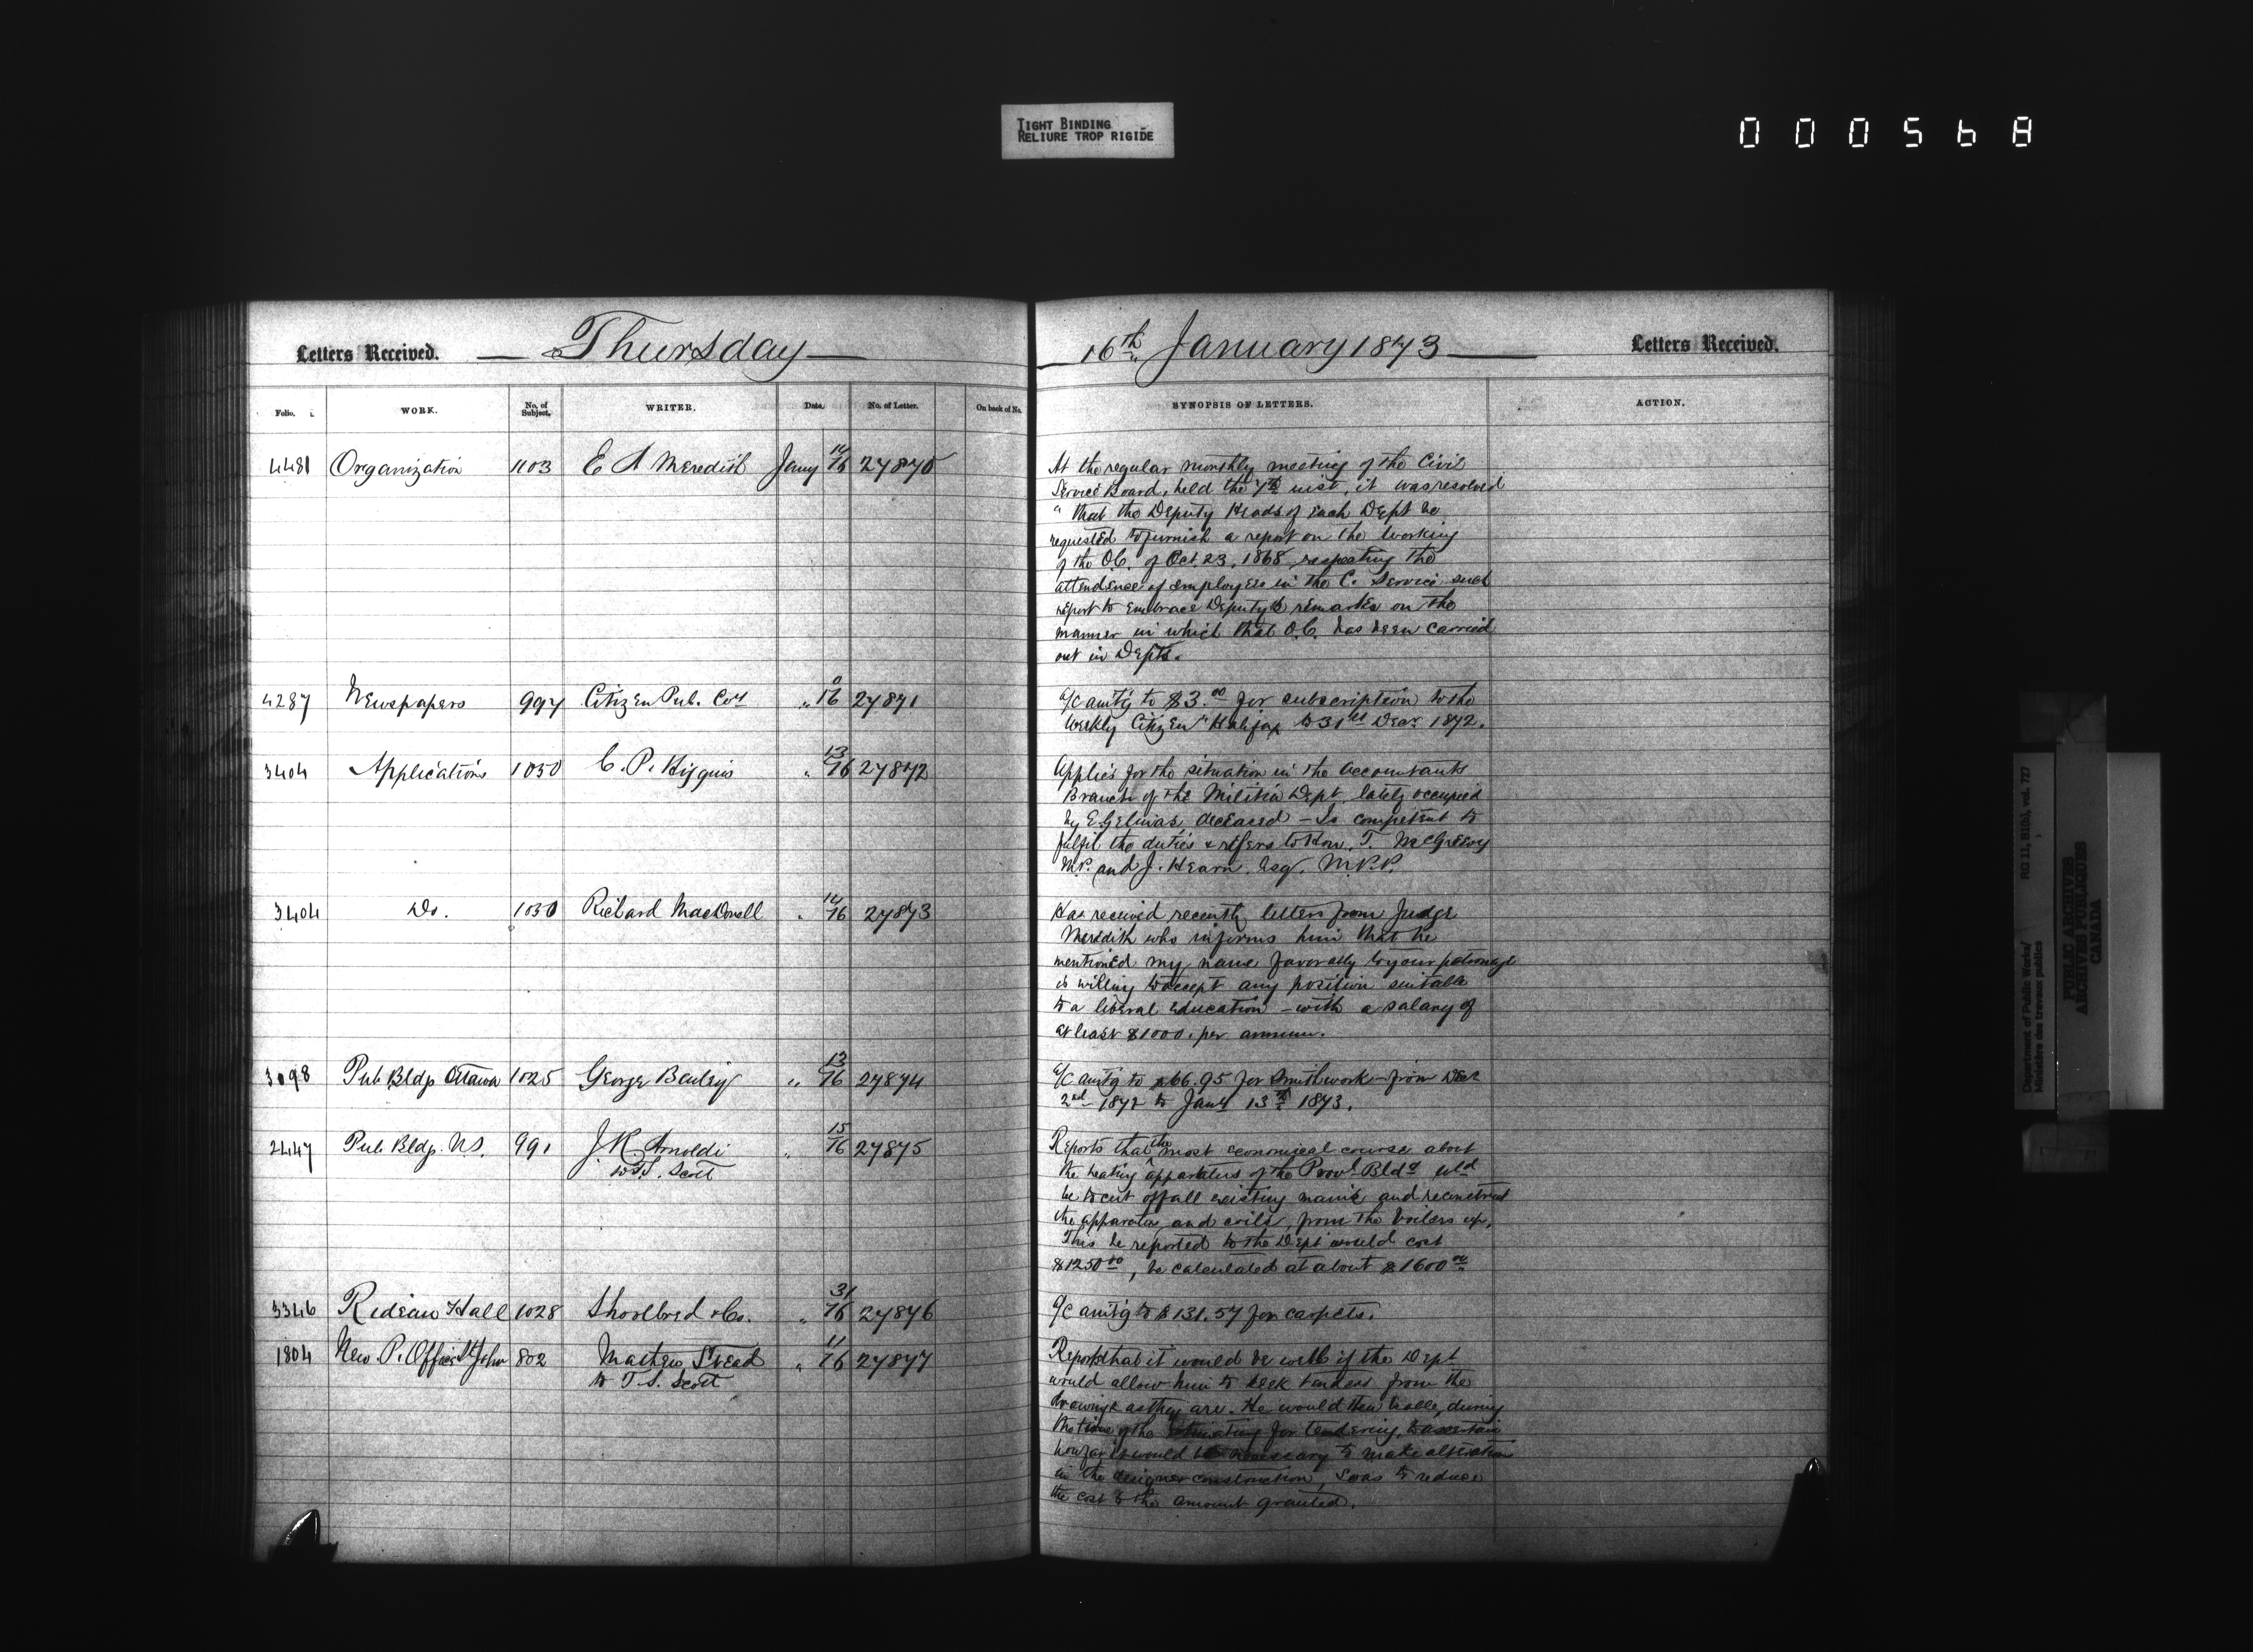 TIGHT BINDING
RELIURE TROP RIGIDE
000568
Letters Received. Thursday
16th January 1873 Letters Received.
Folio. WORK. No. of Subject. WRITER. Date. No. of Letter. On back of No.
SYNOPSIS OF LETTERS. ACTION.
4481 Organization 1103 E A Meredith Jany 14/16 27870
At the regular monthly meeting of the Civil
Service Board, held the 7th inst, it was resolved
"that the Deputy Heads of each Dept be
requested to furnish a report on the working
of the O.C. of Oct. 23, 1868 respecting the
attendance of employees in the C. Service such
report to embrace Deputy's remarks on the
manner in which that O.C. has been carried
out in Depts.
4287 Newspapers 997 Citizen Pub. Coy " 16 27871
a/c amtg to $3.00 for subscription to the
Weekly Citizen" Halifax to 31st Decr 1872.
3404 Applications 1030 C. P. Higgins " 13/16 27872
Applies for the situation in the Accountants
Branch of the Militia Dept. lately occupied
by E. Gelinas, deceased - Is competent to
fulfil the duties & refers to Hon. T. McGreevy
M.P. and J. Hearn, Esq. M.P.P.
3404 Do. 1030 Richard MacDonell " 14/16 27873
Has received recently letters from Judge
Meredith who informs him that he
mentioned my name favorably to your patronage
is willing to accept any position suitable
to a liberal education - with a salary of
at least $1000. per annum.
3098 Pub Bldg Ottawa 1025 George Bailey " 13/16 27874
a/c amtg to $66.95 for Smithwork - from Decr
2nd 1872 to Jany 13th 1873.
2447 Pub Bldg. N.S. 991 J R Arnoldi " 15/16 27875
to T.S. Scott
Reports that the most economical course about
the heating apparatus of the Provl Bldg wld
be to cut off all existing mains and reconstruct
the apparatus and coils, from the boilers up.
This he reported to the Dept would cost
$1250.00, he calculated at about $1600.00
3346 Rideau Hall 1028 Shoolbred & Co. " 31/16 27876
a/c amtg to $131.57 for carpets.
1804 New P. Office St John 802 Mathew Stead " 11/16 27877
to T.S. Scott
Reports that it would be well if the Dept
would allow him to seek tenders from the
drawings as they are. He would then be able, during
the time of the estimating for tendering, to ascertain
how far it would be necessary to make alteration
in the design or construction, so as to reduce
the cost to the amount granted.
Department of Public Works/
Ministère des travaux publics
RG 11, B1(b), vol. 727
PUBLIC ARCHIVES
ARCHIVES PUBLIQUES
CANADA